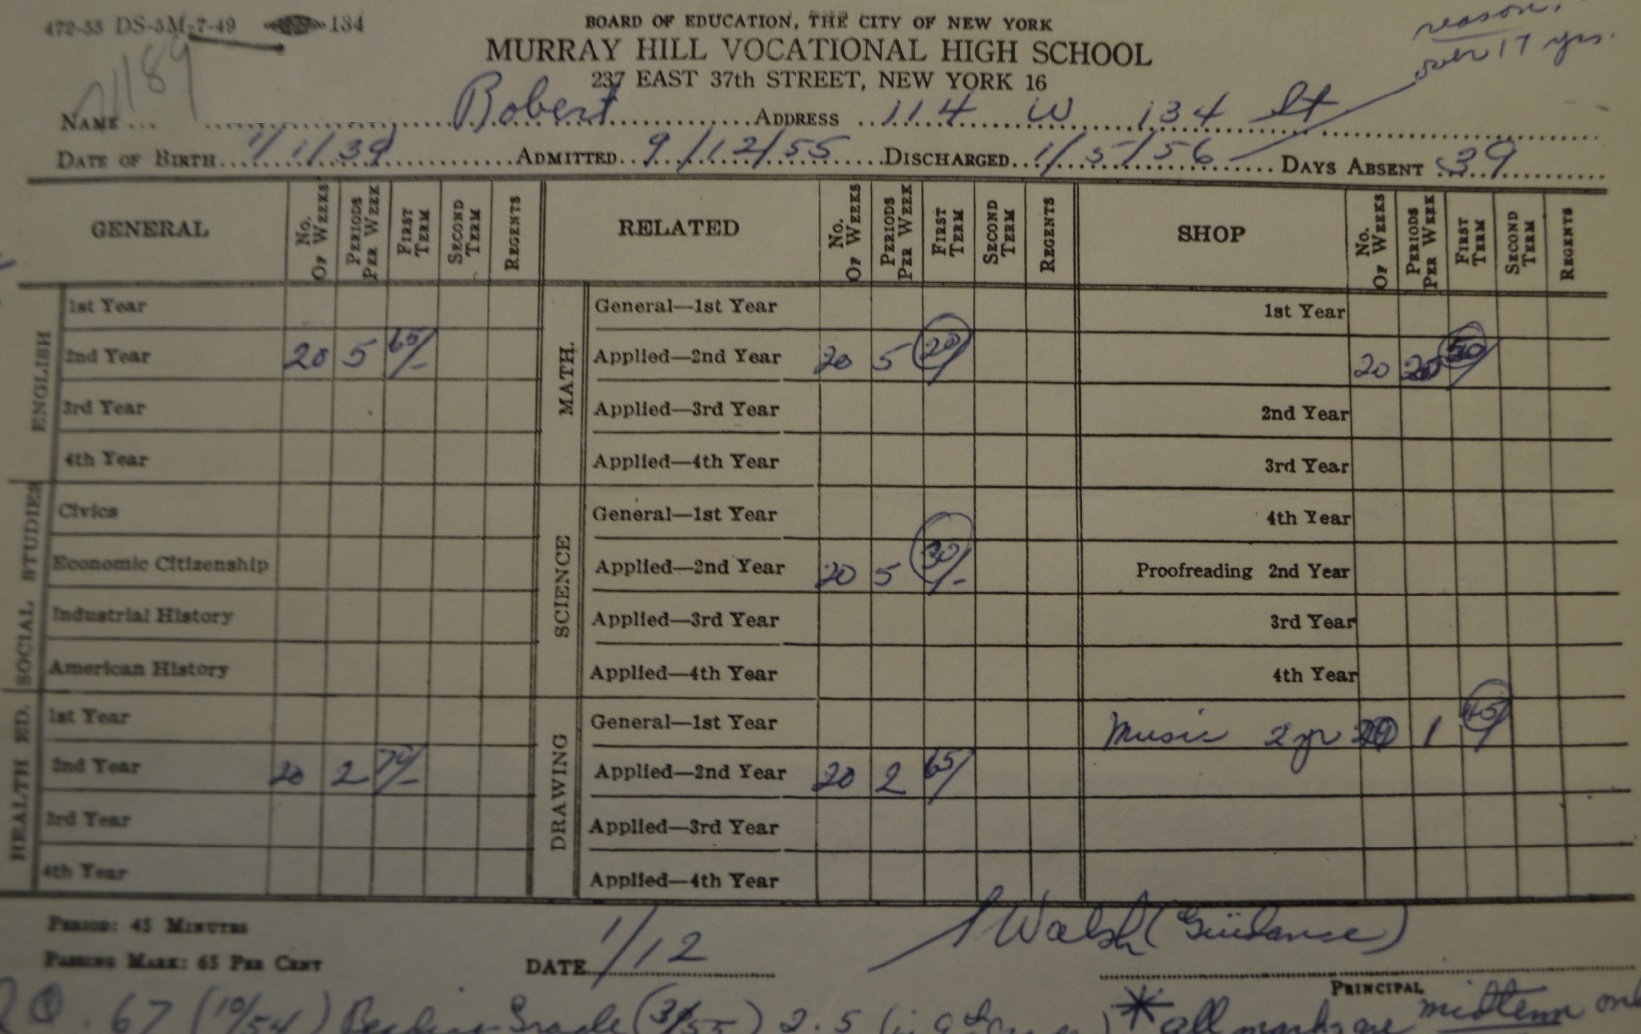 472-55 DS-5M-7-49 134
BOARD OF EDUCATION, THE CITY OF NEW YORK
MURRAY HILL VOCATIONAL HIGH SCHOOL
237 EAST 37th STREET, NEW YORK 16
reason.
over 17 yrs.
189
NAME Robert ADDRESS 114 W 134 St
DATE OF BIRTH 1/1/39 ADMITTED 9/12/55 DISCHARGED 1/5/56 DAYS ABSENT 39
GENERAL No. OF WEEKS PERIODS PER WEEK FIRST TERM SECOND TERM REGENTS RELATED No. OF WEEKS PERIODS PER WEEK FIRST TERM SECOND TERM REGENTS SHOP No. OF WEEKS PERIODS PER WEEK FIRST TERM SECOND TERM REGENTS
ENGLISH 1st Year MATH. General—1st Year 1st Year
2nd Year 20 5 65/- Applied—2nd Year 20 5 20/ 20 25 50/
3rd Year Applied—3rd Year 2nd Year
4th Year Applied—4th Year 3rd Year
SOCIAL STUDIES Civics SCIENCE General—1st Year 4th Year
Economic Citizenship Applied—2nd Year 20 5 30/- Proofreading 2nd Year
Industrial History Applied—3rd Year 3rd Year
American History Applied—4th Year 4th Year
HEALTH ED. 1st Year DRAWING General—1st Year Music 2 yr 20 1 45/
2nd Year 20 2 70/- Applied—2nd Year 20 2 65/
3rd Year Applied—3rd Year
4th Year Applied—4th Year
PERIOD: 45 MINUTES
PASSING MARK: 65 PER CENT DATE 1/12 Walsh (Guidance)
PRINCIPAL
Q. 67 (10/54) Reading Grade (3/55) 2.5 * all marks are midterm only